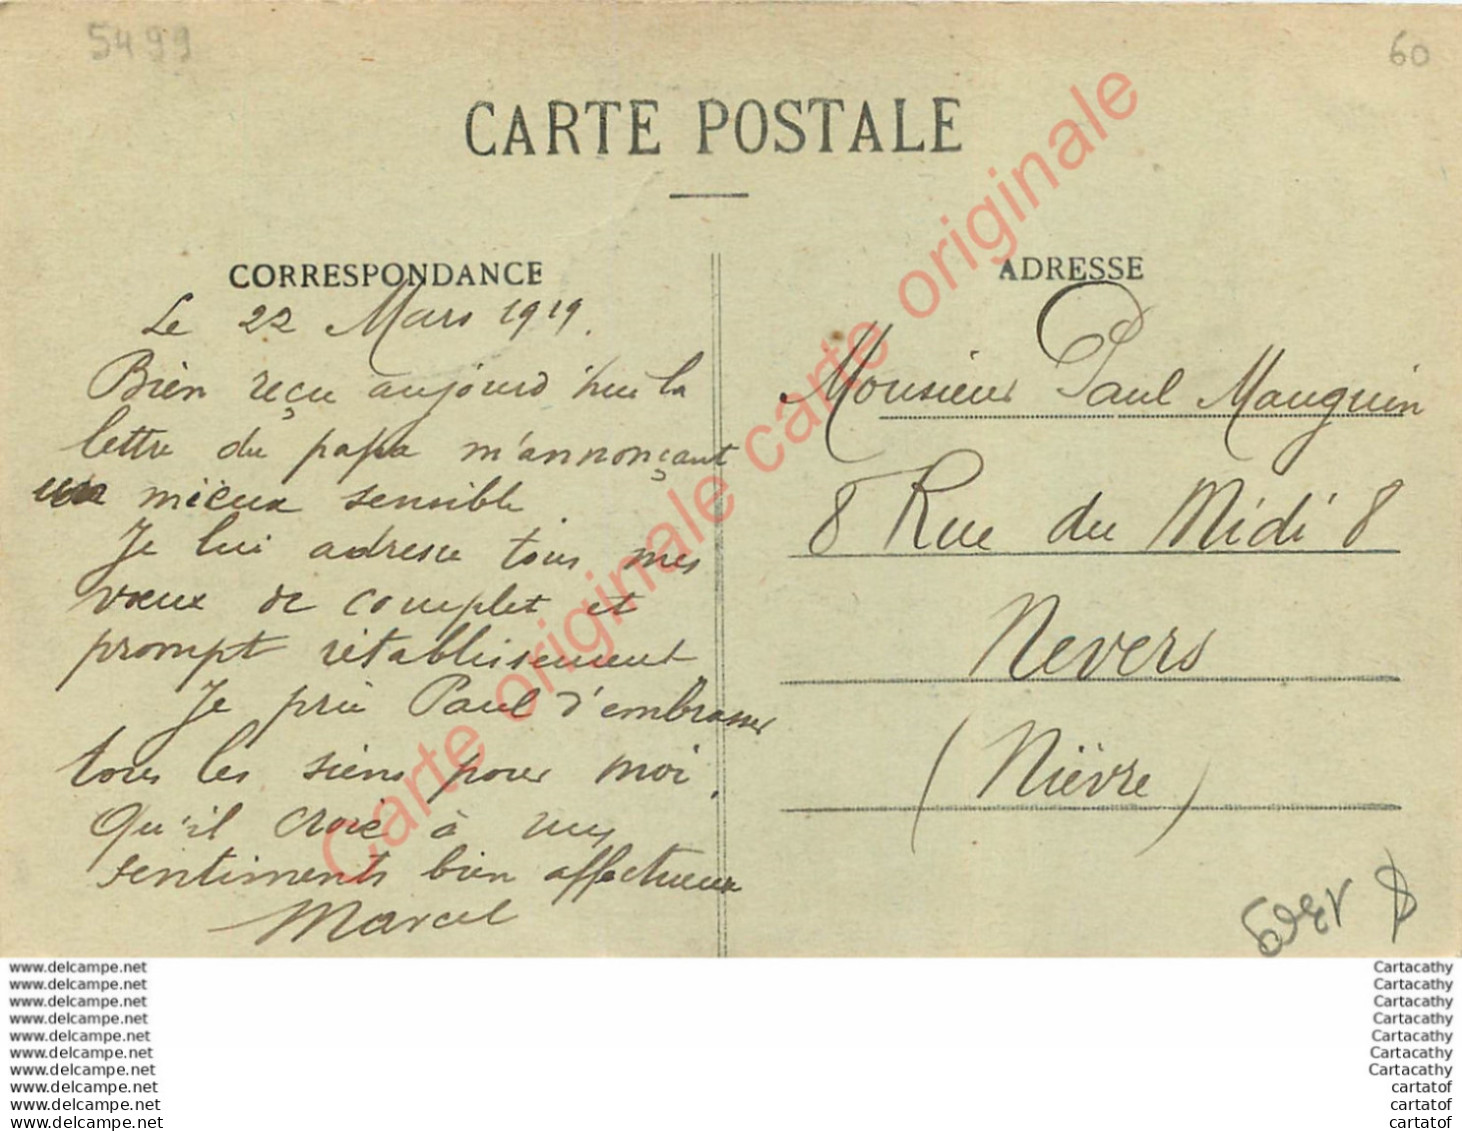 5499
60
CARTE POSTALE
CORRESPONDANCE
Le 22 Mars 1919.
Bien reçu aujourd'hui la
lettre du papa m'annonçant
un mieux sensible.
Je lui adresse tous mes
vœux de complet et
prompt rétablissement
Je prie Paul d'embrasser
tous les siens pour moi.
Qu'il croie à mes
sentiments bien affectueux
Marcel
ADRESSE
Monsieur Paul Mauguin
8 Rue du Midi 8
Nevers
(Nièvre)
Carte originale carte originale carte originale
www.delcampe.net
www.delcampe.net
www.delcampe.net
www.delcampe.net
www.delcampe.net
www.delcampe.net
www.delcampe.net
www.delcampe.net
www.delcampe.net
www.delcampe.net
Cartacathy
Cartacathy
Cartacathy
Cartacathy
Cartacathy
Cartacathy
Cartacathy
cartatof
cartatof
cartatof